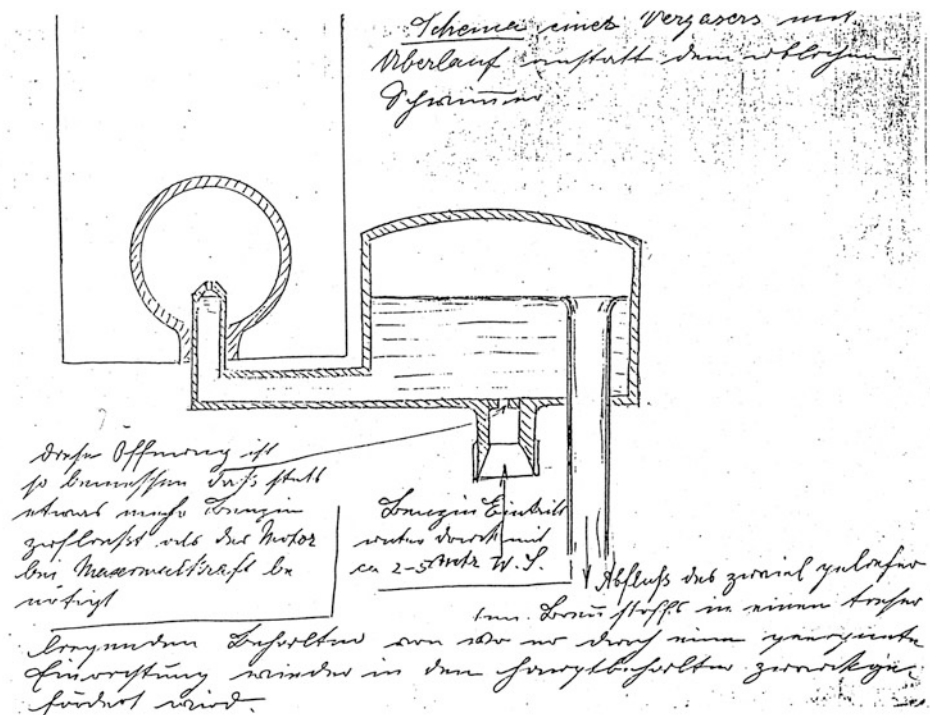 Schema eines Vergasers mit
Überlauf anstatt dem üblichen
Schwimmer
diese Öffnung ist
so bemessen daß stets
etwas mehr Benzin
zufließt als der Motor
bei Maximalkraft be
nötigt
Benzin Eintritt
unter Druck mit
ca 2-5 mtr W. S.
Abfluß des zuviel geliefer
ten Brennstoffs in einen tiefer
liegenden Behälter von wo er durch eine geeignete
Einrichtung wieder in den Hauptbehälter zurückge-
fördert wird.